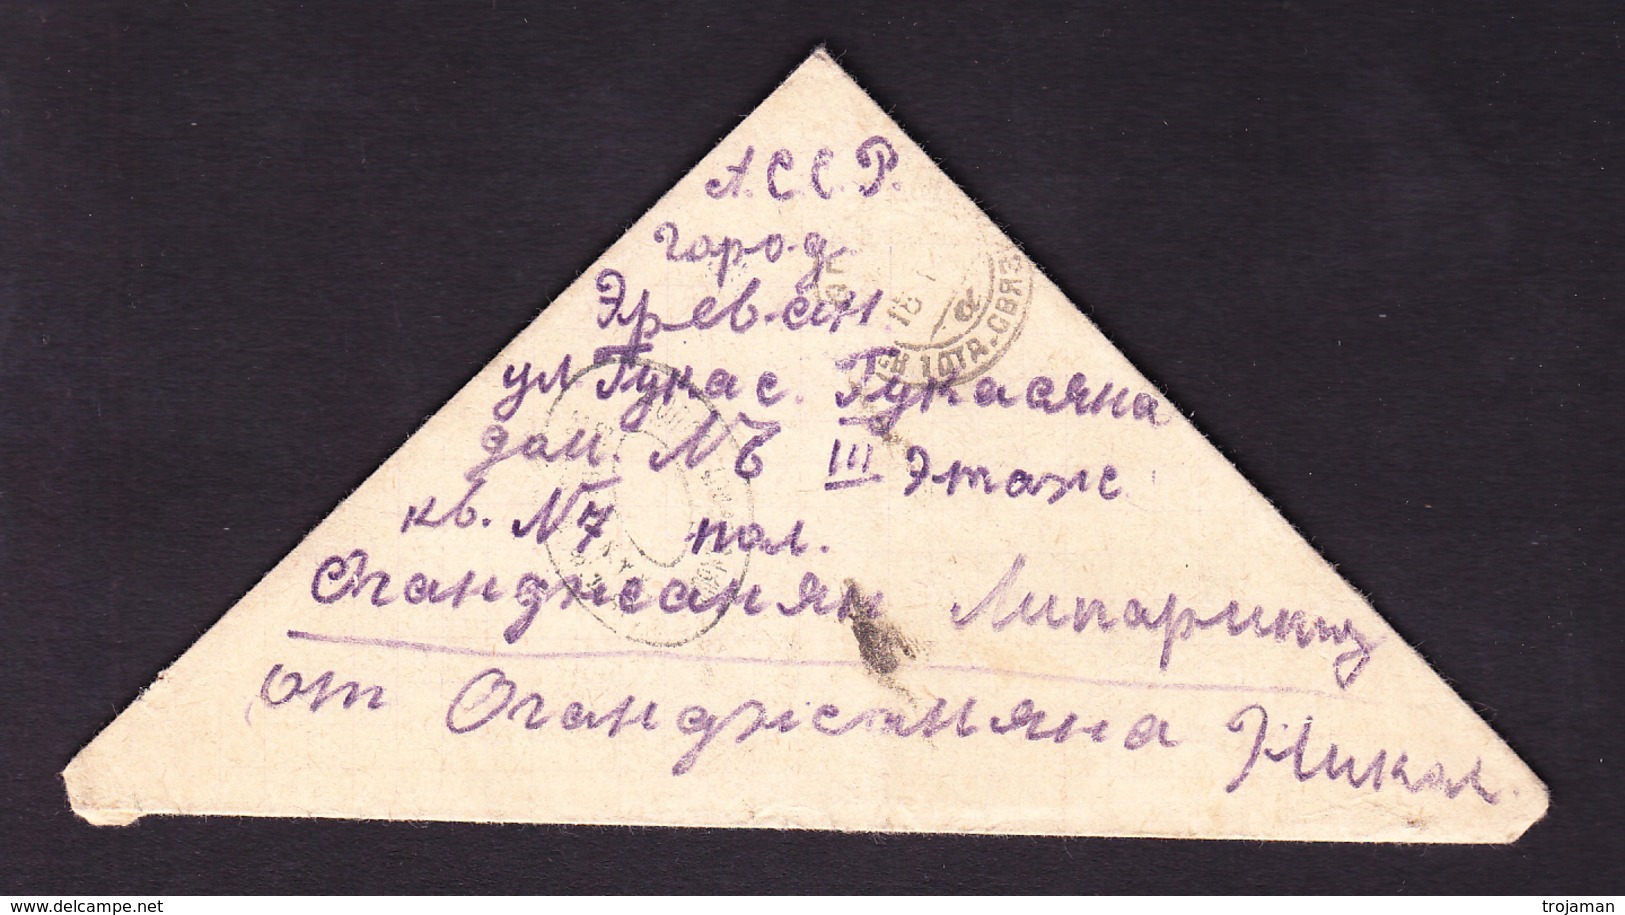 А.С.С.Р.
город
Эреван.
ул Гукас. Гукасяна
дом. № 6 III этаж
кв. N 7 пол.
Оганджанян
от Оганджаняна Никол.
18
а
1 ОТД. СВЯЗ
www.delcampe.net
trojaman